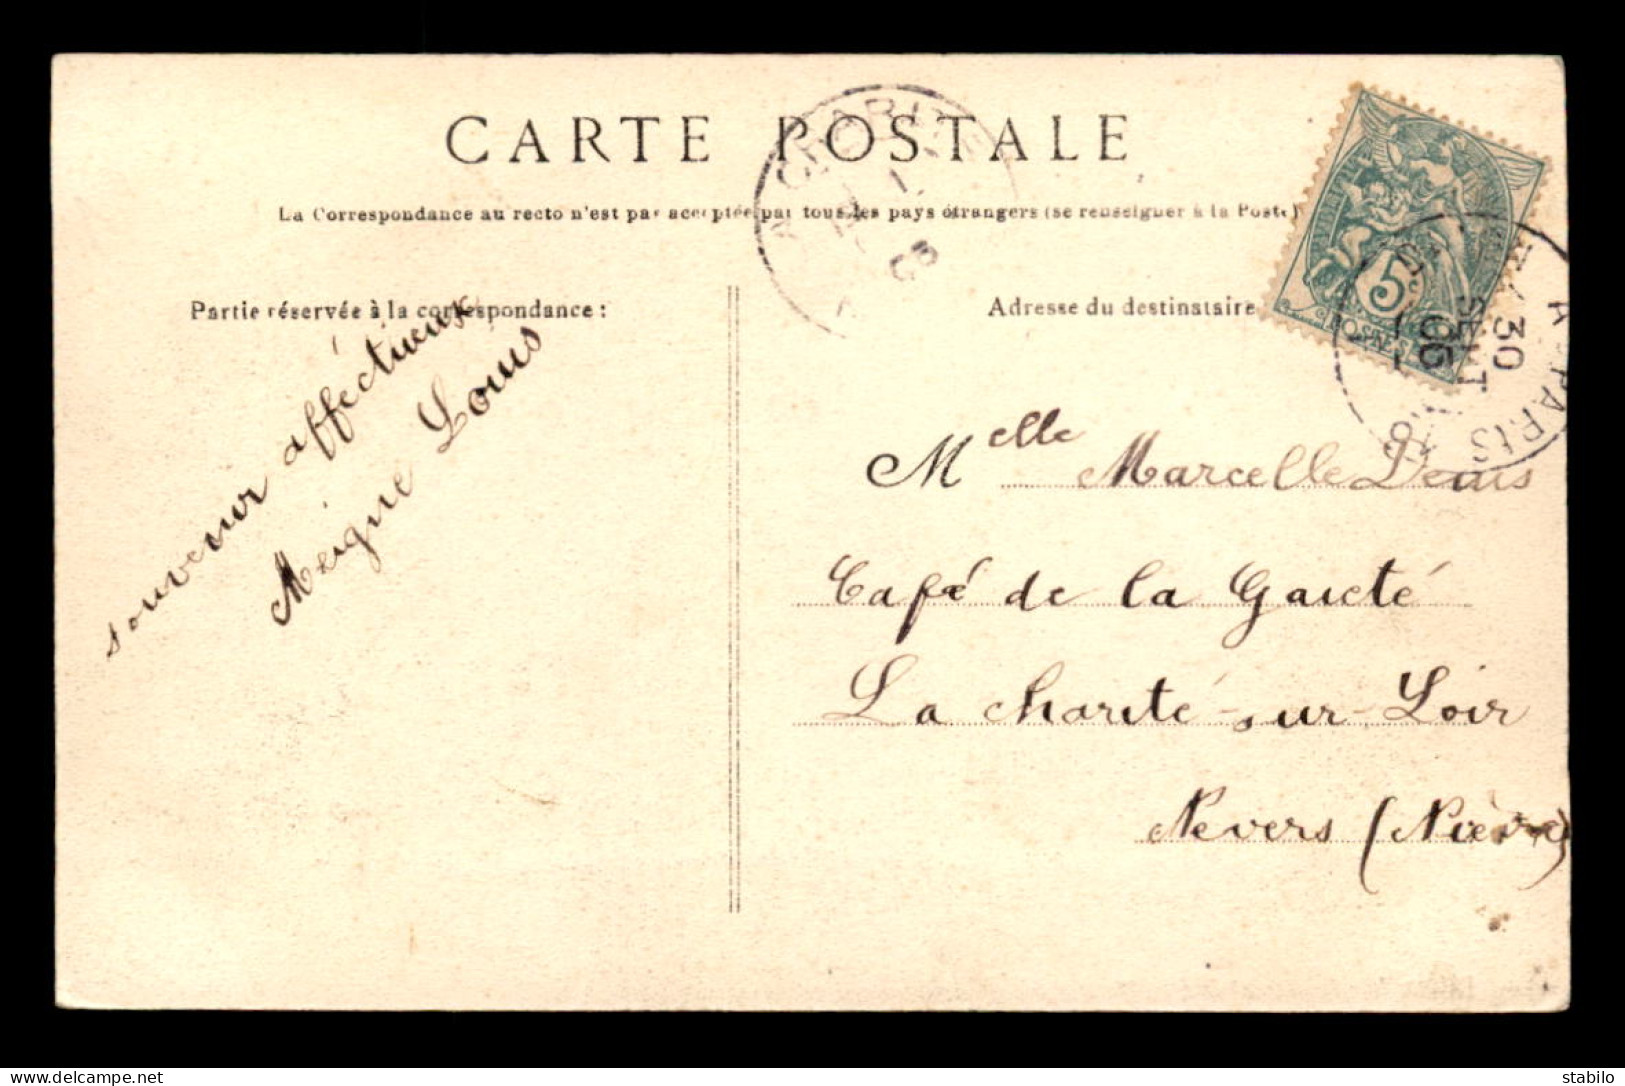 CARTE POSTALE
La Correspondance au recto n'est pas acceptée par tous les pays étrangers (se renseigner à la Poste)
Partie réservée à la correspondance :
Adresse du destinataire
souvenir affectueux
Meigne Louis
Melle Marcelle Denis
Café de la Gaieté
La Charité-sur-Loir
Nevers (Nièvre)
5
POSTES
PARIS
30
SEPT
05
CHARITE
www.delcampe.net
stabilo